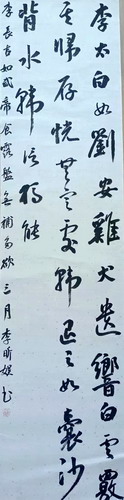 李太白如劉安雞犬遺響白雲覈
其歸存恍無定處韓退之如囊沙
背水韓信獨能
李長吉如武帝食露盤無補多欲 三月 李昕書